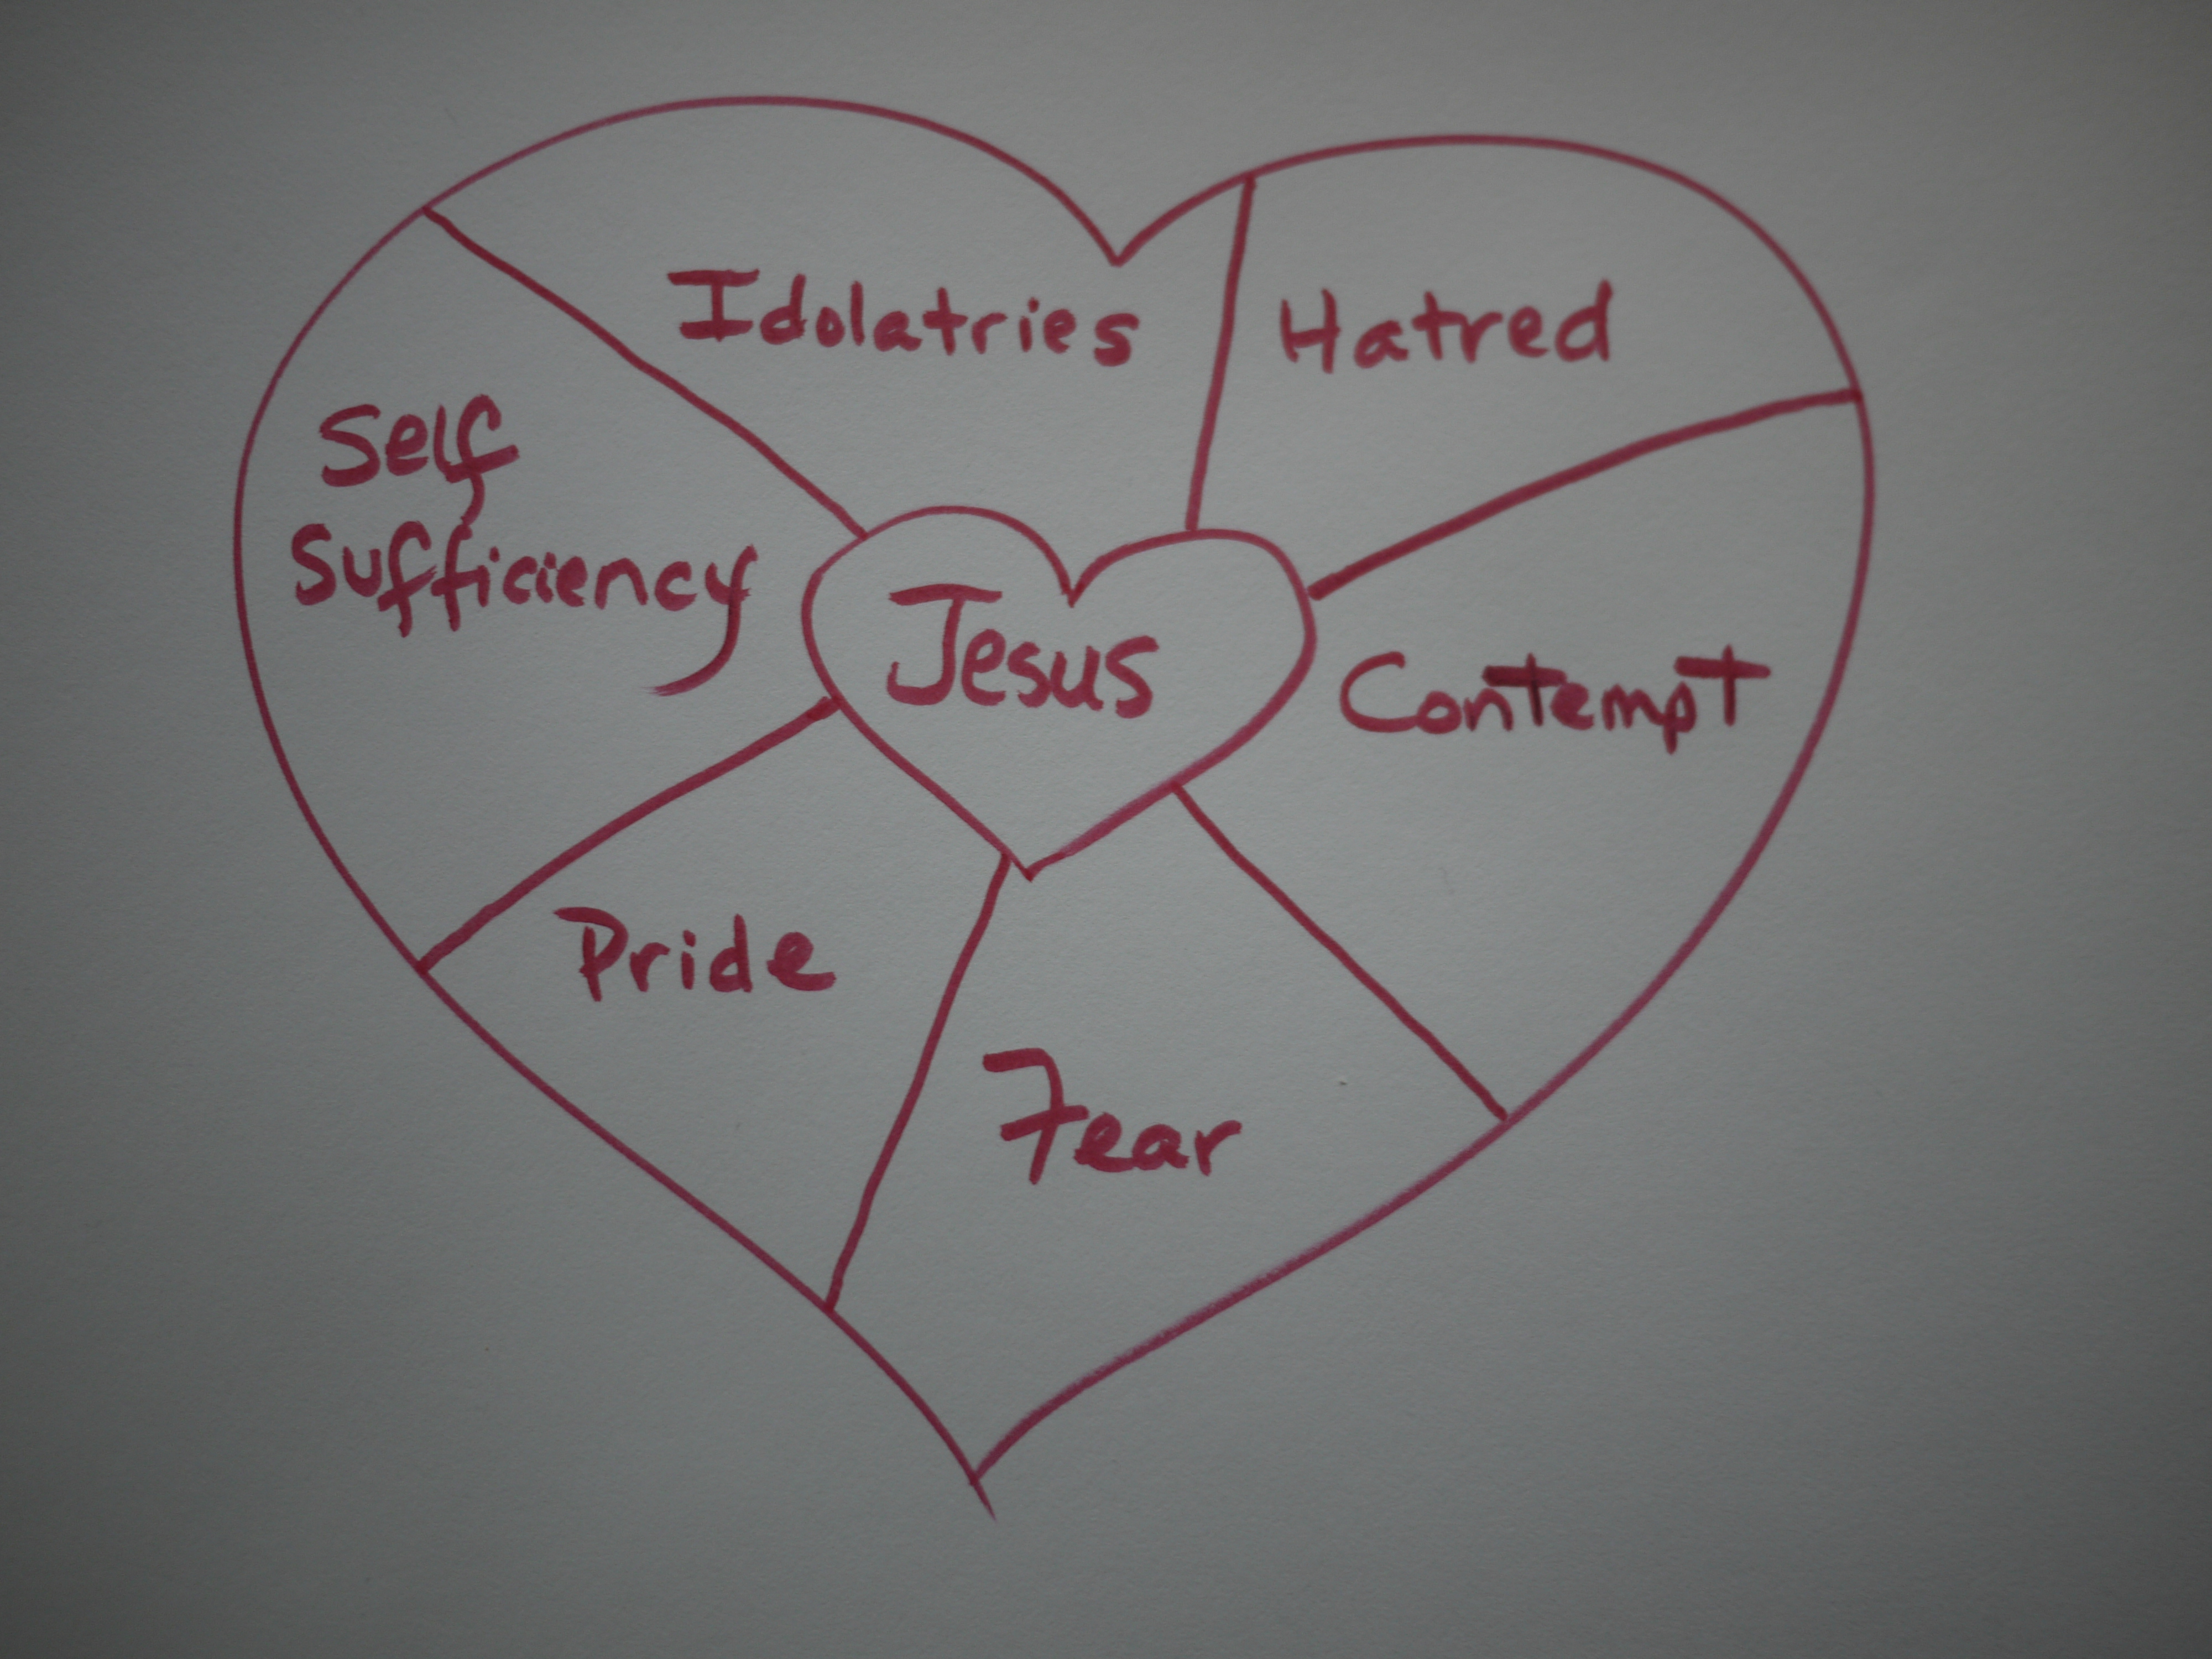 Idolatries
Hatred
Self
Sufficiency
Jesus
Contempt
Pride
Fear